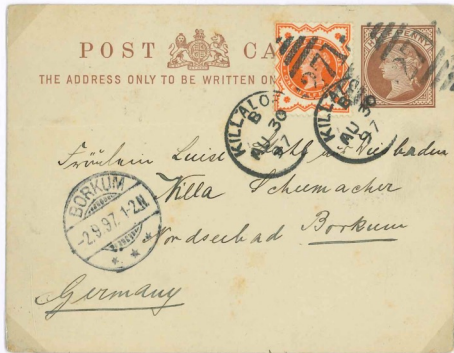 POST CA
THE ADDRESS ONLY TO BE WRITTEN ON
HALFPENNY
KILLALOE
B
AU 30
97
KILLALO
B
AU 30
97
Fräulein Luise aus Wiesbaden
Villa Schumacher
Nordseebad Borkum
Germany
BORKUM
-2.9.97.1-2.N
* * *